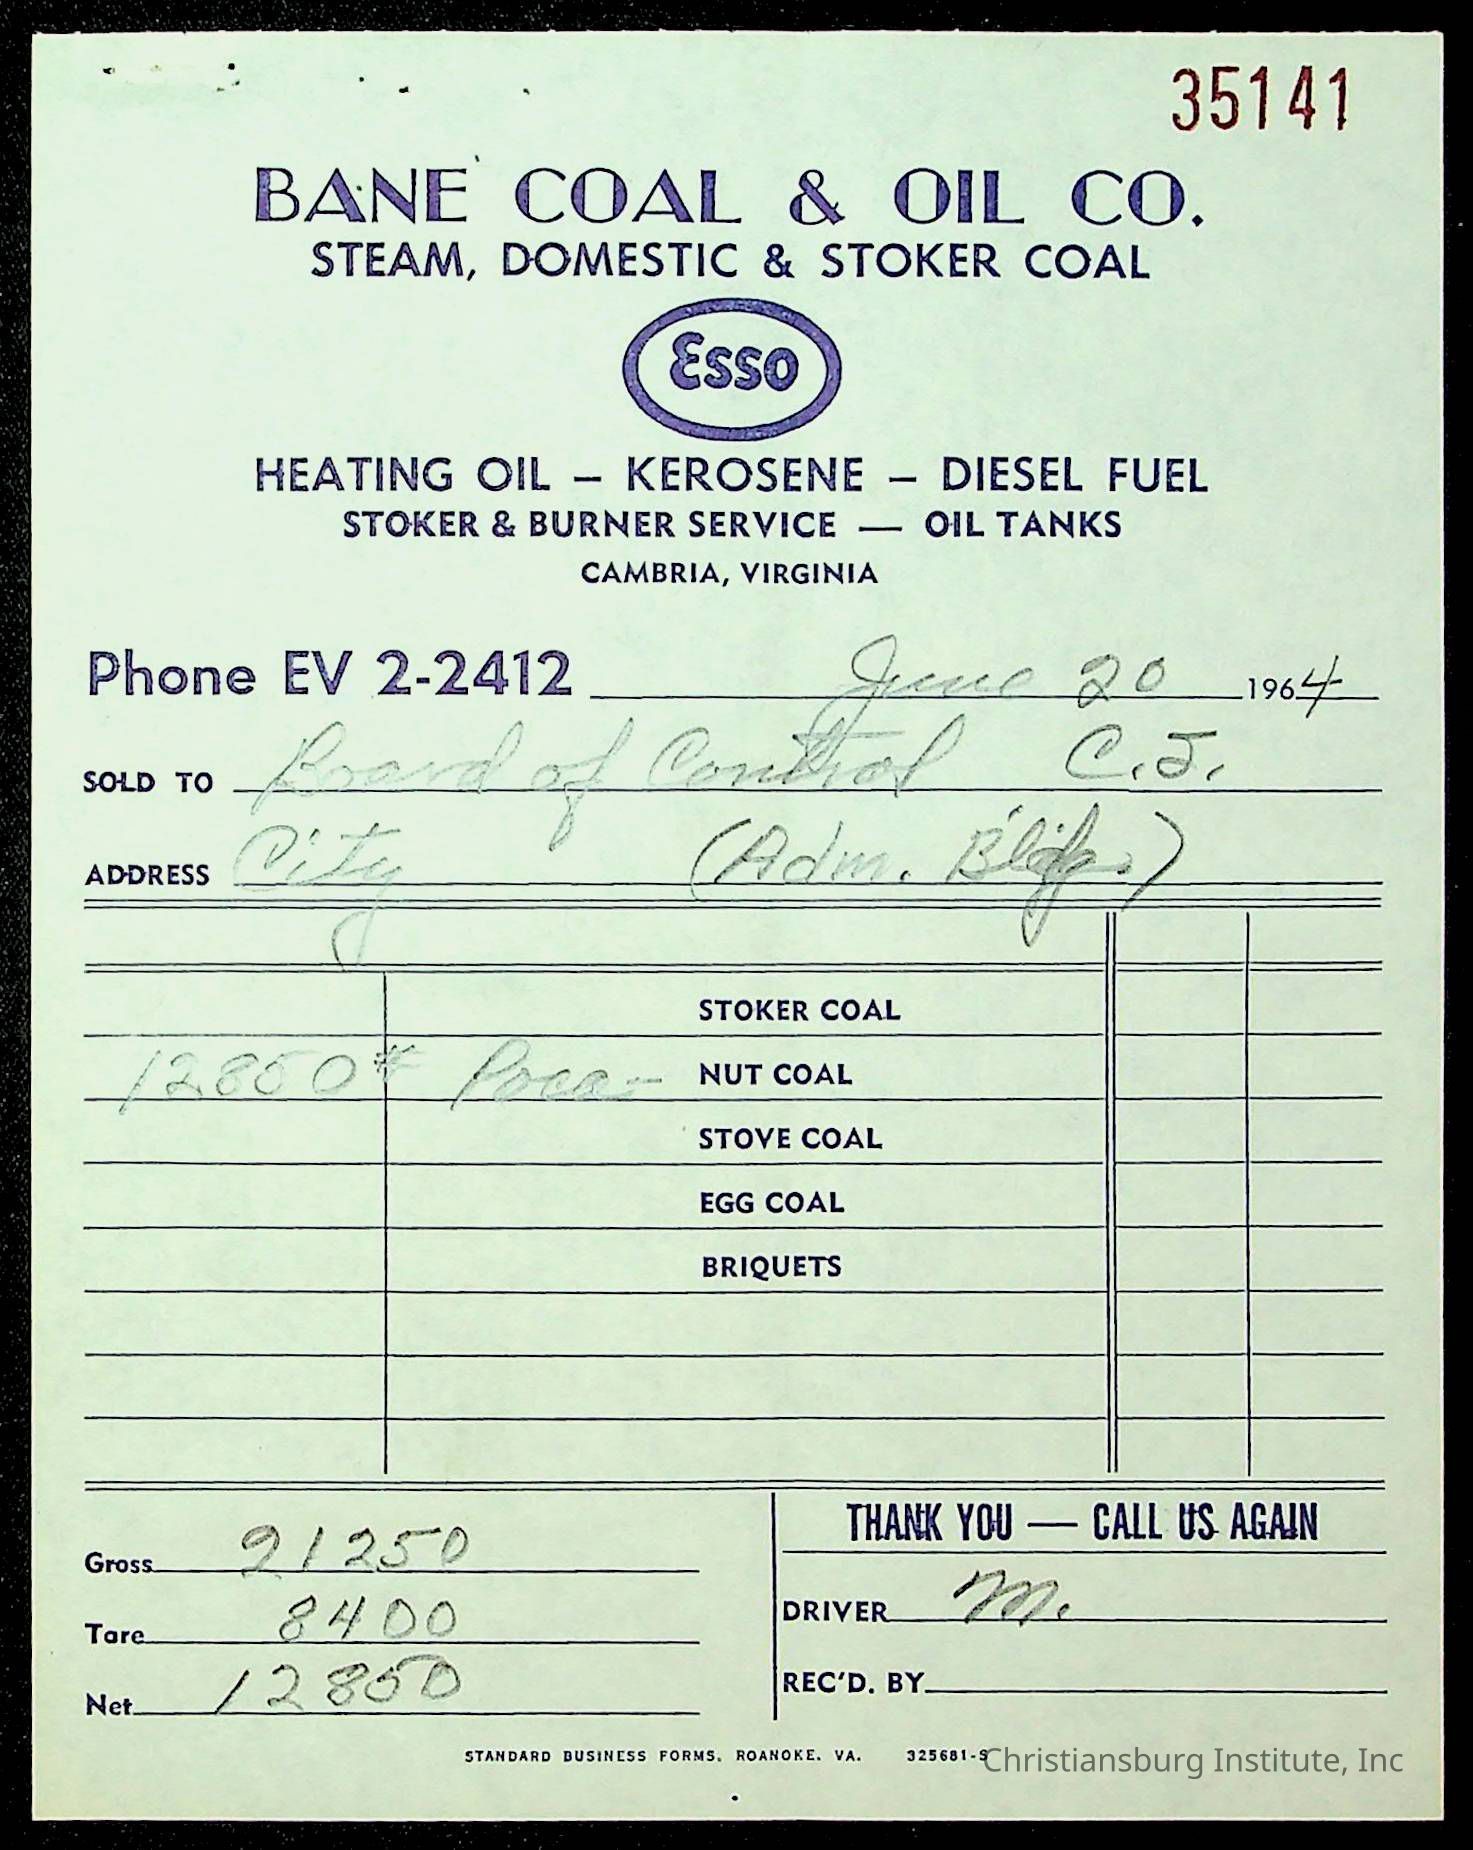 35141
BANE COAL & OIL CO.
STEAM, DOMESTIC & STOKER COAL
Esso
HEATING OIL – KEROSENE – DIESEL FUEL
STOKER & BURNER SERVICE — OIL TANKS
CAMBRIA, VIRGINIA
Phone EV 2-2412 June 20 1964
SOLD TO Board of Control C.I.
ADDRESS City (Adm. Bldg.)
STOKER COAL
12850# Poca- NUT COAL
STOVE COAL
EGG COAL
BRIQUETS
THANK YOU — CALL US AGAIN
Gross 21250
DRIVER M.
Tare 8400
REC'D. BY
Net 12850
STANDARD BUSINESS FORMS. ROANOKE. VA. 325681-S
Christiansburg Institute, Inc